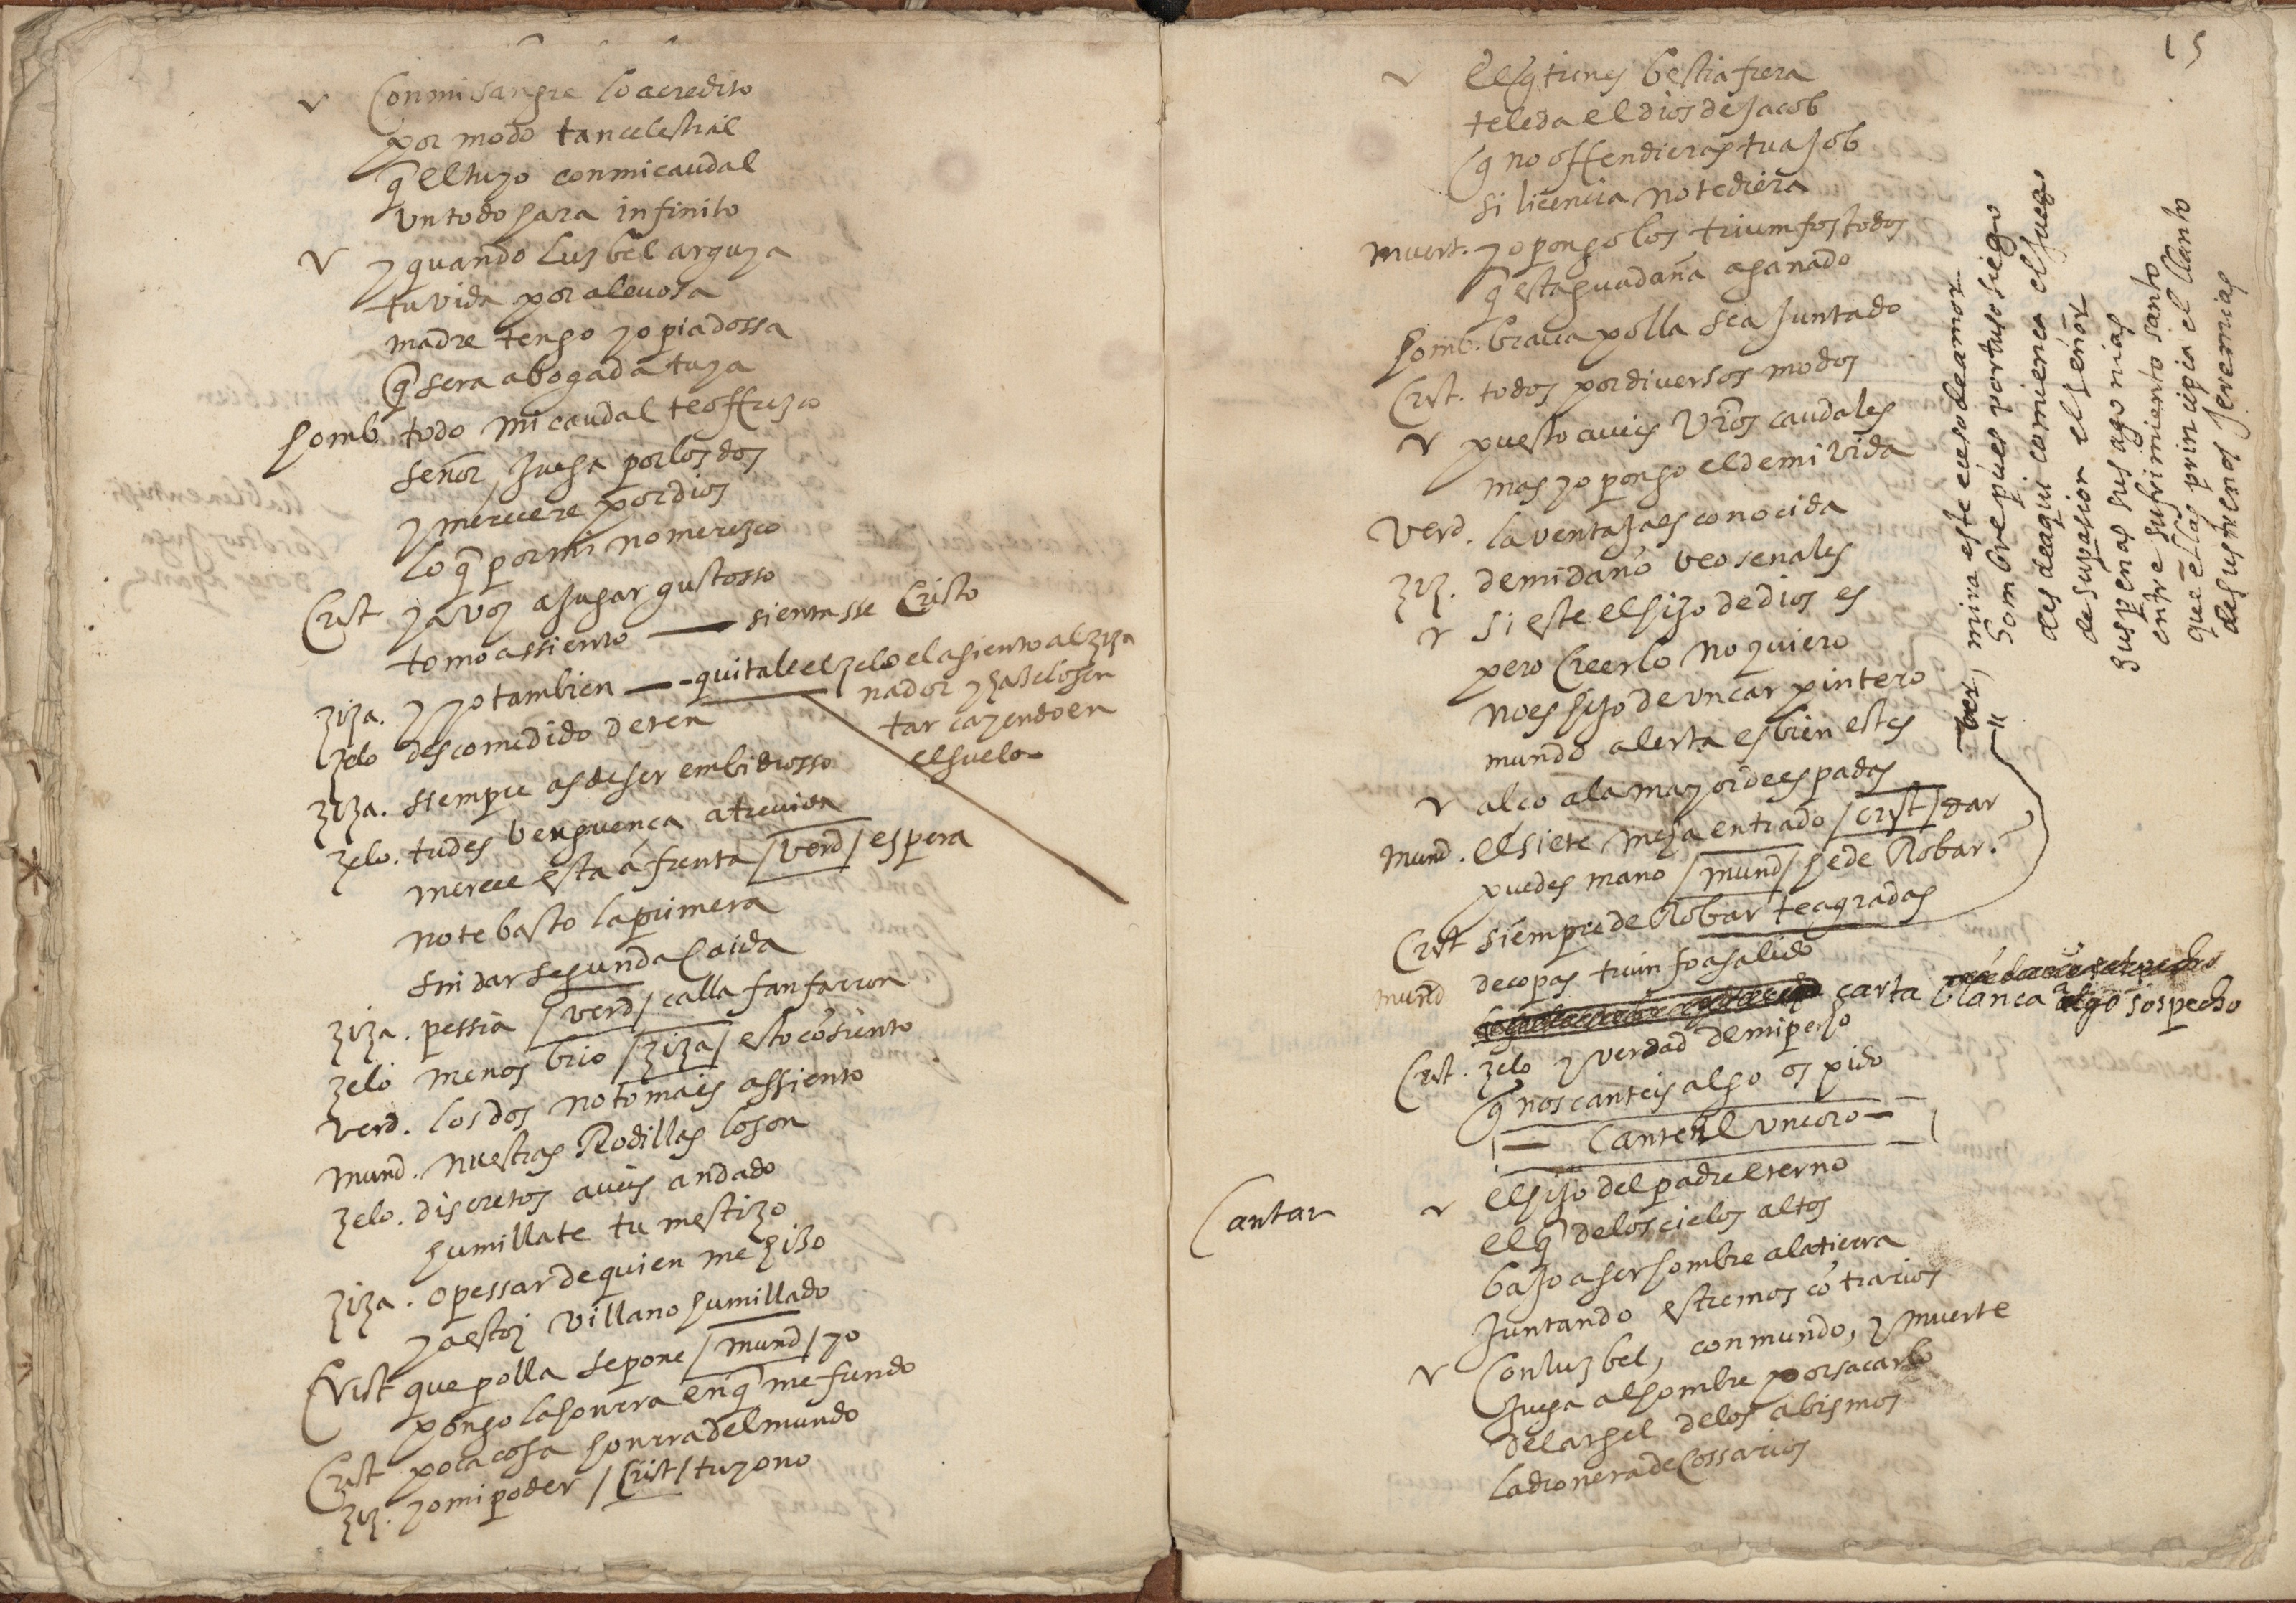 Con mi sangre lo acredito
por modo tan celestial
q̃ el tuyo con mi caudal
un todo hara infinito
y quando Luzbel arguya
tu vida por alevosa
madre tengo yo piadossa
q̃ sera abogada tuya
homb. todo mi caudal te offrezco
señor juega por los dos
y merecere por dios
lo q̃ por mi no merezco
Crist ya voy a jugar gustosso
tomo assiento — sientasse Cristo
ziza. y yo tambien — quitale el zelo el asiento al ziza
nador y hazelo sen
tar cayendo en
el suelo
zelo descomedido deten
ziza. siempre as de ser embidiosso
zelo. tu des verguença atrevida
merece esta afrenta / verd / espera
no te basto la primera
sin dar segunda Caida
ziza. pessia / verd / calla fanfarron
zelo menos brio / ziza / esto cõsiento
verd. los dos no tomais assiento
Mund. nuestras Rodillas lo son
zelo. discretos aveis andado
humillate tu mestizo
ziza. o pessar de quien me hizo
ya estoy villano humillado
Crist que polla se pone / mund / yo
pongo la honrra en q̃ me fundo
Crist poca cosa honrra del mundo
ziz. yo mi poder / Crist / tuyo no
15
el q̃ tienes bestia fiera
te le da el dios de Jacob
q̃ no offendieras tu a Job
si licencia no te diera
Muert. yo pongo los triumfos todos
q̃ esta guadaña a ganado
homb. brava polla se a juntado
Crist. todos por diversos modos
puesto aveis vrõs caudales
mas yo pongo el de mi vida
Verd. la ventaja es conocida
ziz. de mi daño veo señales
si este el hijo de dios es
pero Creerlo no quiero
no es hijo de un carpintero
mundo alerta es bien estes
alço a la mayor de espadas
Mund. el siete meja entrado / crist / dar
puedes mano / mund / he de Robar.
Crist siempre de Robar te agradas
mund de copas triunfo a salido
carta blanca algo sospecho
Crist. zelo y verdad de mi pecho
q̃ nos canteis algo os pido
— Canten el un coro —
Cantar
el hijo del padre eterno
el q̃ de los cielos altos
bajo a ser hombre a la tierra
juntando estremos cõtrarios
Con luzbel, con mundo, y muerte
juega al hombre por sacarlo
del argel de los abismos
ladronera de Cossarios
ver, mira este eceso de amor
hombre pues por tu sosiego
des de aqui comienca el juego
de su pasion el señor
suspenas sus agonias
entre sufrimiento santo
que en ellas principia el llanto
de sus trenos Jeremias